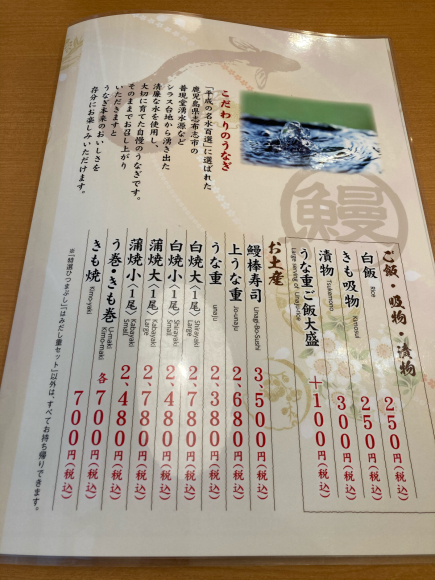 こだわりのうなぎ
「平成の名水百選」に選ばれた
鹿児島県志布志市の
普現堂湧水源など
シラス台地から湧き出た
清廉な水を使用し、
大切に育てた自慢のうなぎです。
そのままでお召し上がり
いただきますと
うなぎ本来のおいしさを
存分にお楽しみいただけます。
鰻
ご飯・吸物・漬物
白飯 Rice 250円(税込)
きも吸物 Kimosui 250円(税込)
漬物 Tsukemono 300円(税込)
うな重ご飯大盛 +100円(税込)
お土産
鰻棒寿司 Unagi-Bo-Sushi 3,500円(税込)
上うな重 Jo-unaju 2,680円(税込)
うな重 unaju 2,380円(税込)
白焼大〈1尾〉 Shirayaki Large 2,780円(税込)
白焼小〈1尾〉 Shirayaki Small 2,480円(税込)
蒲焼大〈1尾〉 Kabayaki Large 2,780円(税込)
蒲焼小〈1尾〉 Kabayaki Small 2,480円(税込)
う巻・きも巻 U-maki Kimo-maki 各700円(税込)
きも焼 Kimo-yaki 700円(税込)
※「特選ひつまぶし」「はみだし重セット」以外は、すべてお持ち帰りできます。